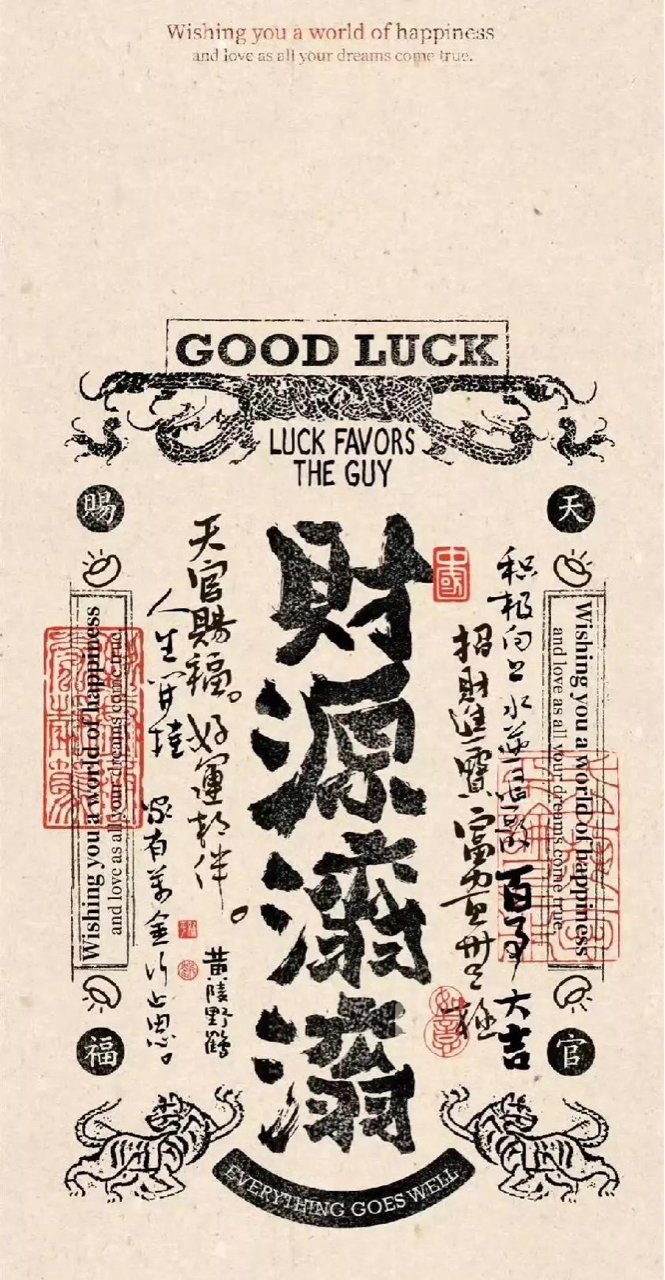 Wishing you a world of happiness
and love as all your dreams come true.
GOOD LUCK
LUCK FAVORS
THE GUY
天
官
賜
福
財源滚滚
中國
积极向上 水逆退散 百事大吉
招財進寶 富貴無極
天官賜福。好運相伴。
人生開挂 家有萬金行止思。
黄陵野鶴
如意
Wishing you a world of happiness
and love as all your dreams come true.
Wishing you a world of happiness
and love as all your dreams come true.
EVERYTHING GOES WELL